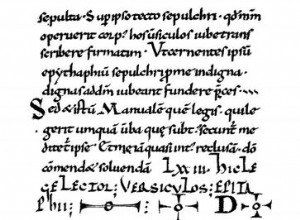 sepulta. Supipso tecto sepulchri. qđ mm
operuerit corp' hos uersiculos iube trans
scribere firmatim. Ut cernentes ipsū
epytaphiū sepulchri p me indigna
dignas ad dñm iubeant fundere pces
Sed & istū Manualē quē legis. qui le
gerit umquā uba que subt' secunt' me
ditet' ipse &
conde & soluenda LXIII. HIC LE
GE LECTOR: VERSICULOS: EPITA
PHII: